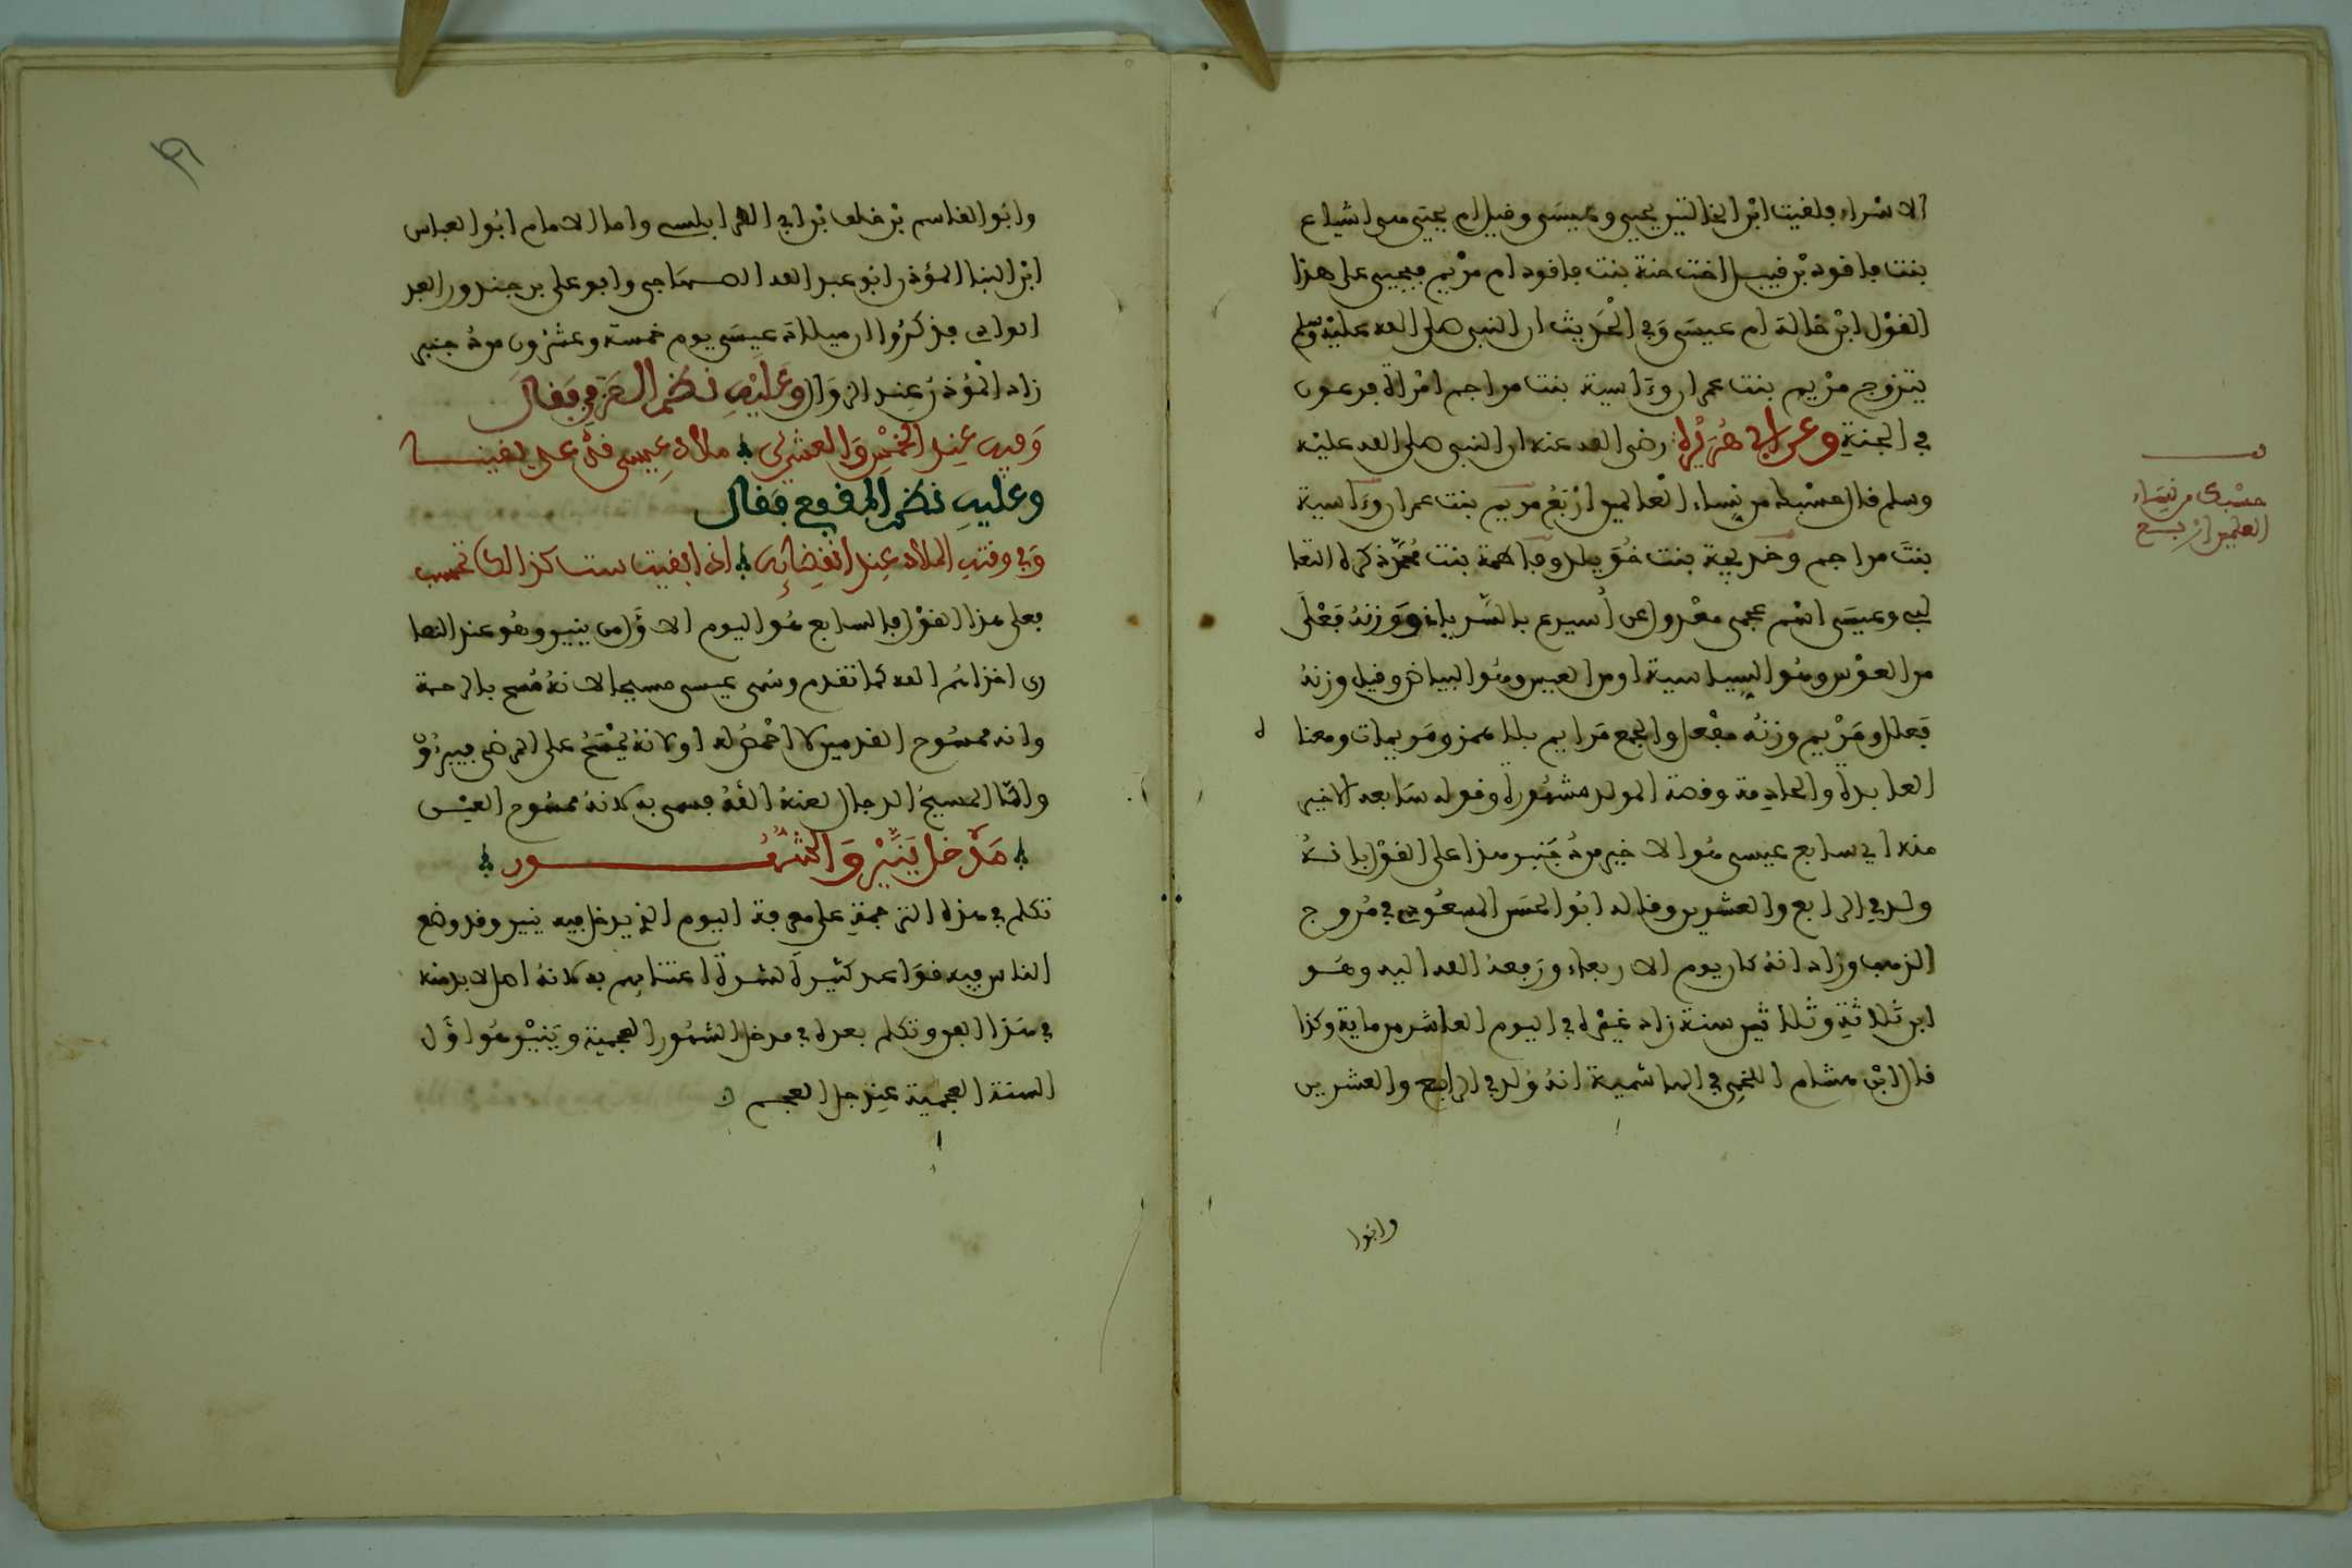 الاسراء فلفيت ابن الخالتين يحيى وعيسى وفيل ام يحيى هى اشياع
بنت فافود بن فبيل اخت حنة بنت فافود ام مريم فيحيى على هذا
الفول ابن خالة ام عيسى وفي الحديث ان النبي صلى الله عليه وسلم
يتزوج مريم بنت عمران وءاسية بنت مزاحم امراة فرعون
في الجنة وعن ابى هريرة رضى الله عنه ان النبي صلى الله عليه
وسلم فال حسبك من نساء العالمين اربع مريم بنت عمران وءاسية
بنت مزاحم وخديجة بنت خويلد وفاطمة بنت محمد ذكره الثعا
لبي وعيسى اسم عجمى معدول عن أيسوع بالسريانى ووزنه فعلى
من العوس وهو السياسة او من العيس وهو البياض وفيل وزنه
فعلل ومريم وزنه مفعل والجمع مرايم بلا همز ومريمات ومعنا
العابدة والخادمة وفصة المولد مشهورة وفوله سابعه الاخير
منه اي سابع عيسى هو الاخير من دجنبر هذا على الفول بانه
ولد في الرابع والعشرين وفاله ابو الحسن المسعودي في مروج
الذهب وزاد انه كان يوم الاربعاء ورفعه الله اليه وهو
ابن ثلاثة وثلاثين سنة زاد غيره في اليوم العاشر من ماية وكذا
فال ابن هشام اللخمي في الهاشمية انه ولد في الرابع والعشرين
وابوا
حسبك من نساء
العلمين اربع
وابو الفاسم بن خلف بن ابي الفرابلسى واما الامام ابو العباس
ابن البنا المؤذن ابو عبد الله الصنهاجي وابو على بن جندور
فذكروا ان ميلاد عيسى يوم خمسة وعشرون من دجنبر
زاد المؤذن عند الزوال وعليه نظم فقال
وفيه عند الخمس والعشرين ميلاد عيسى على يفينا
وعليه نظم المفرع فقال
وفي وفت الميلاد عند انفضائه اذا ابفيت ست كذلك تحسب
فعلى هذا الفول فالسابع هو اليوم الاول من ينير وهو عند النصا
رى اخزاهم الله كما تفدم وسمى عيسى مسيحا لانه مسح بالرحمة
وانه ممسوح الفدمين لا اخمص له او لانه يمسح على المرضى فيبرؤ
واما المسيح الدجال لعنه الله فسمى به لانه ممسوح العين
مدخل ينير والشهور
تكلم في هذه الترجمة على معرفة اليوم الذي يدخل فيه ينير وفد وضع
الناس فيه فواعد كثيرة لشدة اعتنايهم به لانه اصل لابد منه
في هذا الفن وتكلم بعده في مدخل الشهور العجمية وينير هو اول
السنة العجمية عند جل العجم